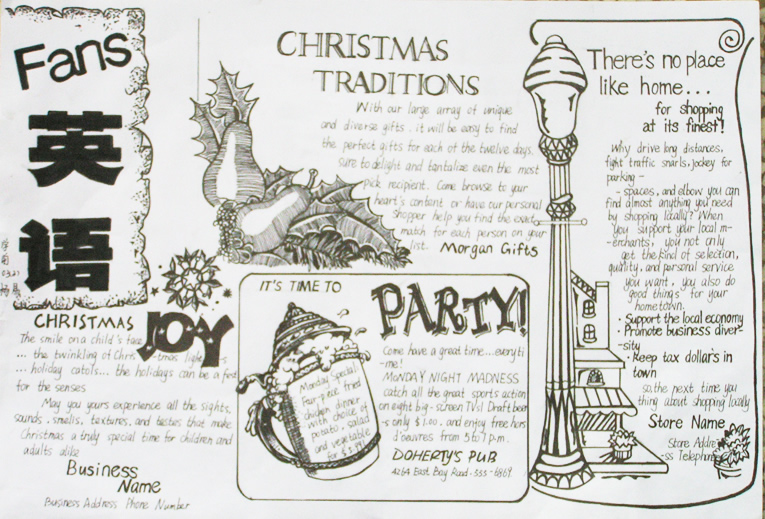 Fans
英
语
03.21
CHRISTMAS
JOY
The smile on a child's face
... the twinkling of Christmas lights
... holiday catols... the holidays can be a feast
for the senses
May you yours experience all the sights,
sounds, smells, textures, and tastes that make
Christmas a truly special time for children and
adults alike
Business
Name
Business Address Phone Number
CHRISTMAS
TRADITIONS
With our large array of unique
and diverse gifts. it will be easy to find
the perfect gifts for each of the twelve days.
sure to delight and tantalize even the most
pick recipient. Come browse to your
heart's content or have our personal
shopper help you find the exact
match for each person on your
list. Morgan Gifts
IT'S TIME TO
PARTY!
Monday Special
Four-piece fried
chicken dinner
with choice of
potato, salad
and vegetable
for $
Come have a great time...everyti
-me!
MONDAY NIGHT MADNESS
catch all the great sports action
on eight big-screen TVs! Draft beer
is only $1.00. and enjoy free hors
d'oeuvres from 5 to 7 p.m.
DOHERTY'S PUB
4264 East Bay Road·555-6869
There's no place
like home...
for shopping
at its finest!
Why drive long distances,
fight traffic snarls, jockey for
parking -
- spaces, and elbow you can
find almost anything you need
by shopping locally? When
you support your local m-
-erchants, you not only
get the kind of selection,
quality, and personal service
you want, you also do
good things for your
hometown.
·Support the local economy
·Promote business diver-
-sity
·Keep tax dollar's in
town
so the next time you
thing about shopping locally
Store Name
Store Addre-
-ss Telephone